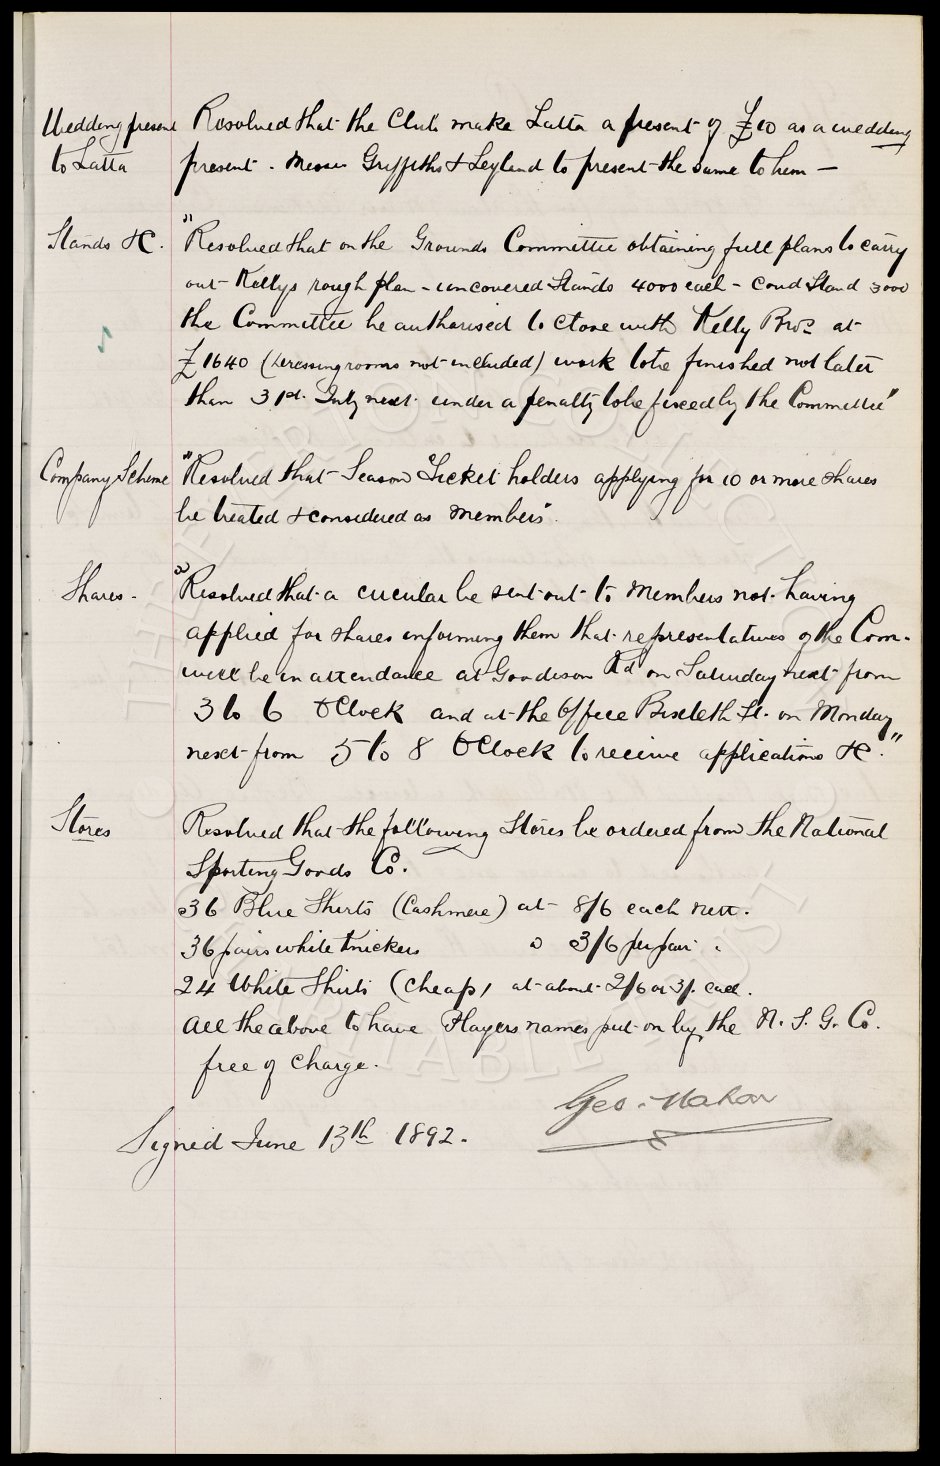 Wedding present Resolved that the Club make Latta a present of £10 as a wedding
to Latta present. Messrs Griffiths & Leyland to present the same to him —
Stands &c. "Resolved that on the Grounds Committee obtaining full plans to carry
out Kellys rough plan - uncovered Stands 4000 each - Covd Stand 3000
the Committee be authorised to close with Kelly Bros at
£1640 (dressing rooms not included) work to be finished not later
than 31st July next under a penalty to be fixed by the Committee"
Company Scheme "Resolved that Season Ticket holders applying for 10 or more shares
be treated & considered as Members".
Shares - "Resolved that a circular be sent out to Members not having
applied for shares informing them that representatives of the Com-
will be in attendance at Goodison Rd on Saturday next from
3 to 6 OClock and at the Office Bixteth St. on Monday
next from 5 to 8 OClock to receive applications &c."
Stores Resolved that the following Stores be ordered from the National
Sporting Goods Co.
36 Blue Shirts (Cashmere) at 8/6 each nett.
36 pairs white knickers " 3/6 per pair "
24 White Shirts (cheap) at about 2/6 or 3/- each.
All the above to have Players names put on by the N. S. G. Co.
free of charge.
Geo. Mahon
Signed June 13th 1892.
THE EVERTON COLLECTION
CHARITABLE TRUST